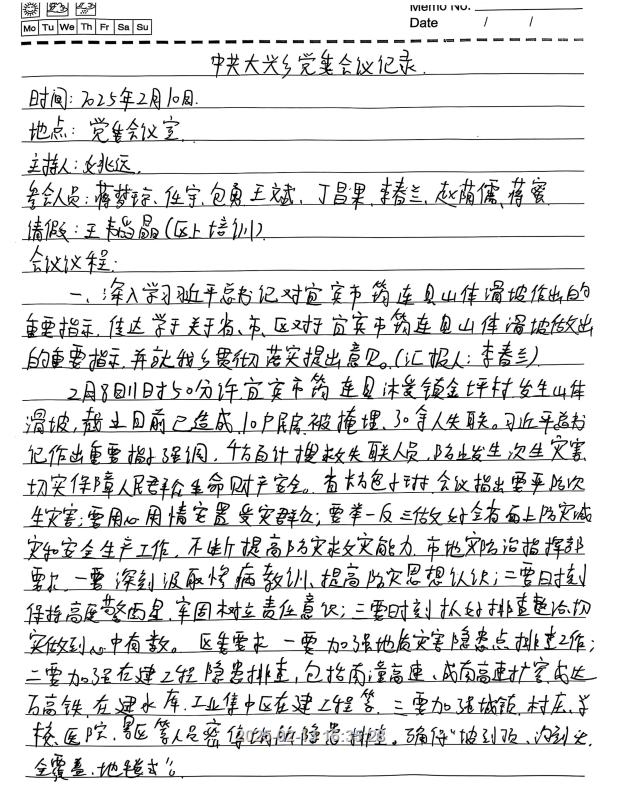 Memo No.
Mo Tu We Th Fr Sa Su
Date / /
中共大兴乡党委会议记录.
时间:2025年2月10日.
地点:党委会议室.
主持人:
参会人员:蒋梦琼、任宇、包勇、王文斌、丁昌果、李春兰、赵荫儒、蒋蜜
请假:王 晶(区上培训)
会议议程:
一、深入学习近平总书记对宜宾市筠连县山体滑坡作出的
重要指示,传达学习关于省、市、区对于宜宾市筠连县山体滑坡做出
的重要指示,并就我乡贯彻落实提出意见。(汇报人:李春兰)
2月8日11时50分许宜宾市筠连县沐爱镇金坪村发生山体
滑坡,截止目前已造成10户民房被掩埋,30余人失联。习近平总书
记作出重要指示强调,千方百计搜救失联人员,防止发生次生灾害,
切实保障人民群众生命财产安全。省 会议指出要严防次
生灾害;要用心用情安置受灾群众;要举一反三做好全省面上防灾减
灾和安全生产工作,不断提高防灾救灾能力.市地灾防治指挥部
要求,一要深刻汲取惨痛教训、提高防灾思想认识;二要时刻
保持高度 ,牢固树立责任意识;三要时刻抓好排查整治,切
实做到心中有数。区委要求一要加强地质灾害隐患点排查工作;
二要加强在建工程隐患排查,包括南潼高速、成南高速扩容、成达
万高铁、在建水库、工业集中区在建工程等.三要加强城镇、村庄、学
校、医院、景区等人员密 场所隐患排查。确保"坡到顶、沟到底、
全覆盖、地毯式".